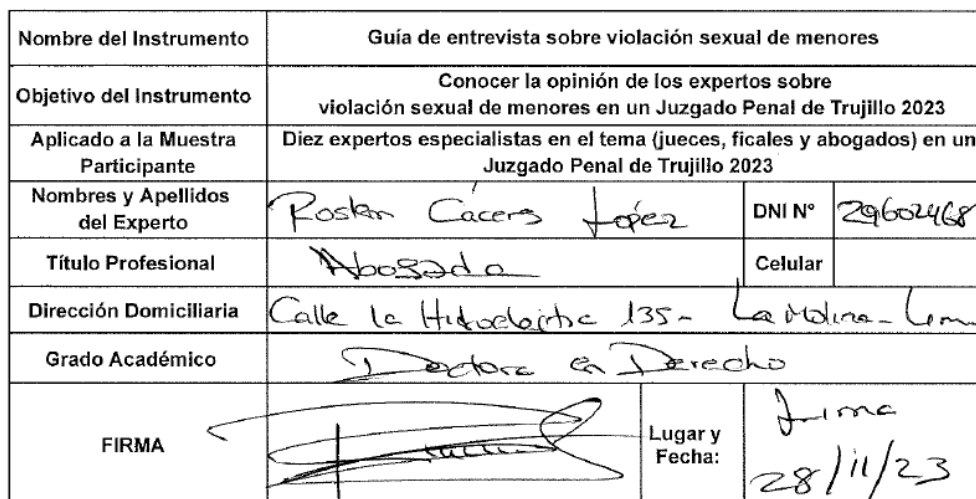 Nombre del Instrumento
Guía de entrevista sobre violación sexual de menores
Objetivo del Instrumento
Conocer la opinión de los expertos sobre
violación sexual de menores en un Juzgado Penal de Trujillo 2023
Aplicado a la Muestra
Participante
Diez expertos especialistas en el tema (jueces, ficales y abogados) en un
Juzgado Penal de Trujillo 2023
Nombres y Apellidos
del Experto
Cáceres López
DNI N°
29602468
Título Profesional
Abogada
Celular
Dirección Domiciliaria
Calle la 135- La Molina- Lima
Grado Académico
Doctora en Derecho
FIRMA
Lugar y
Fecha:
Lima
28/11/23